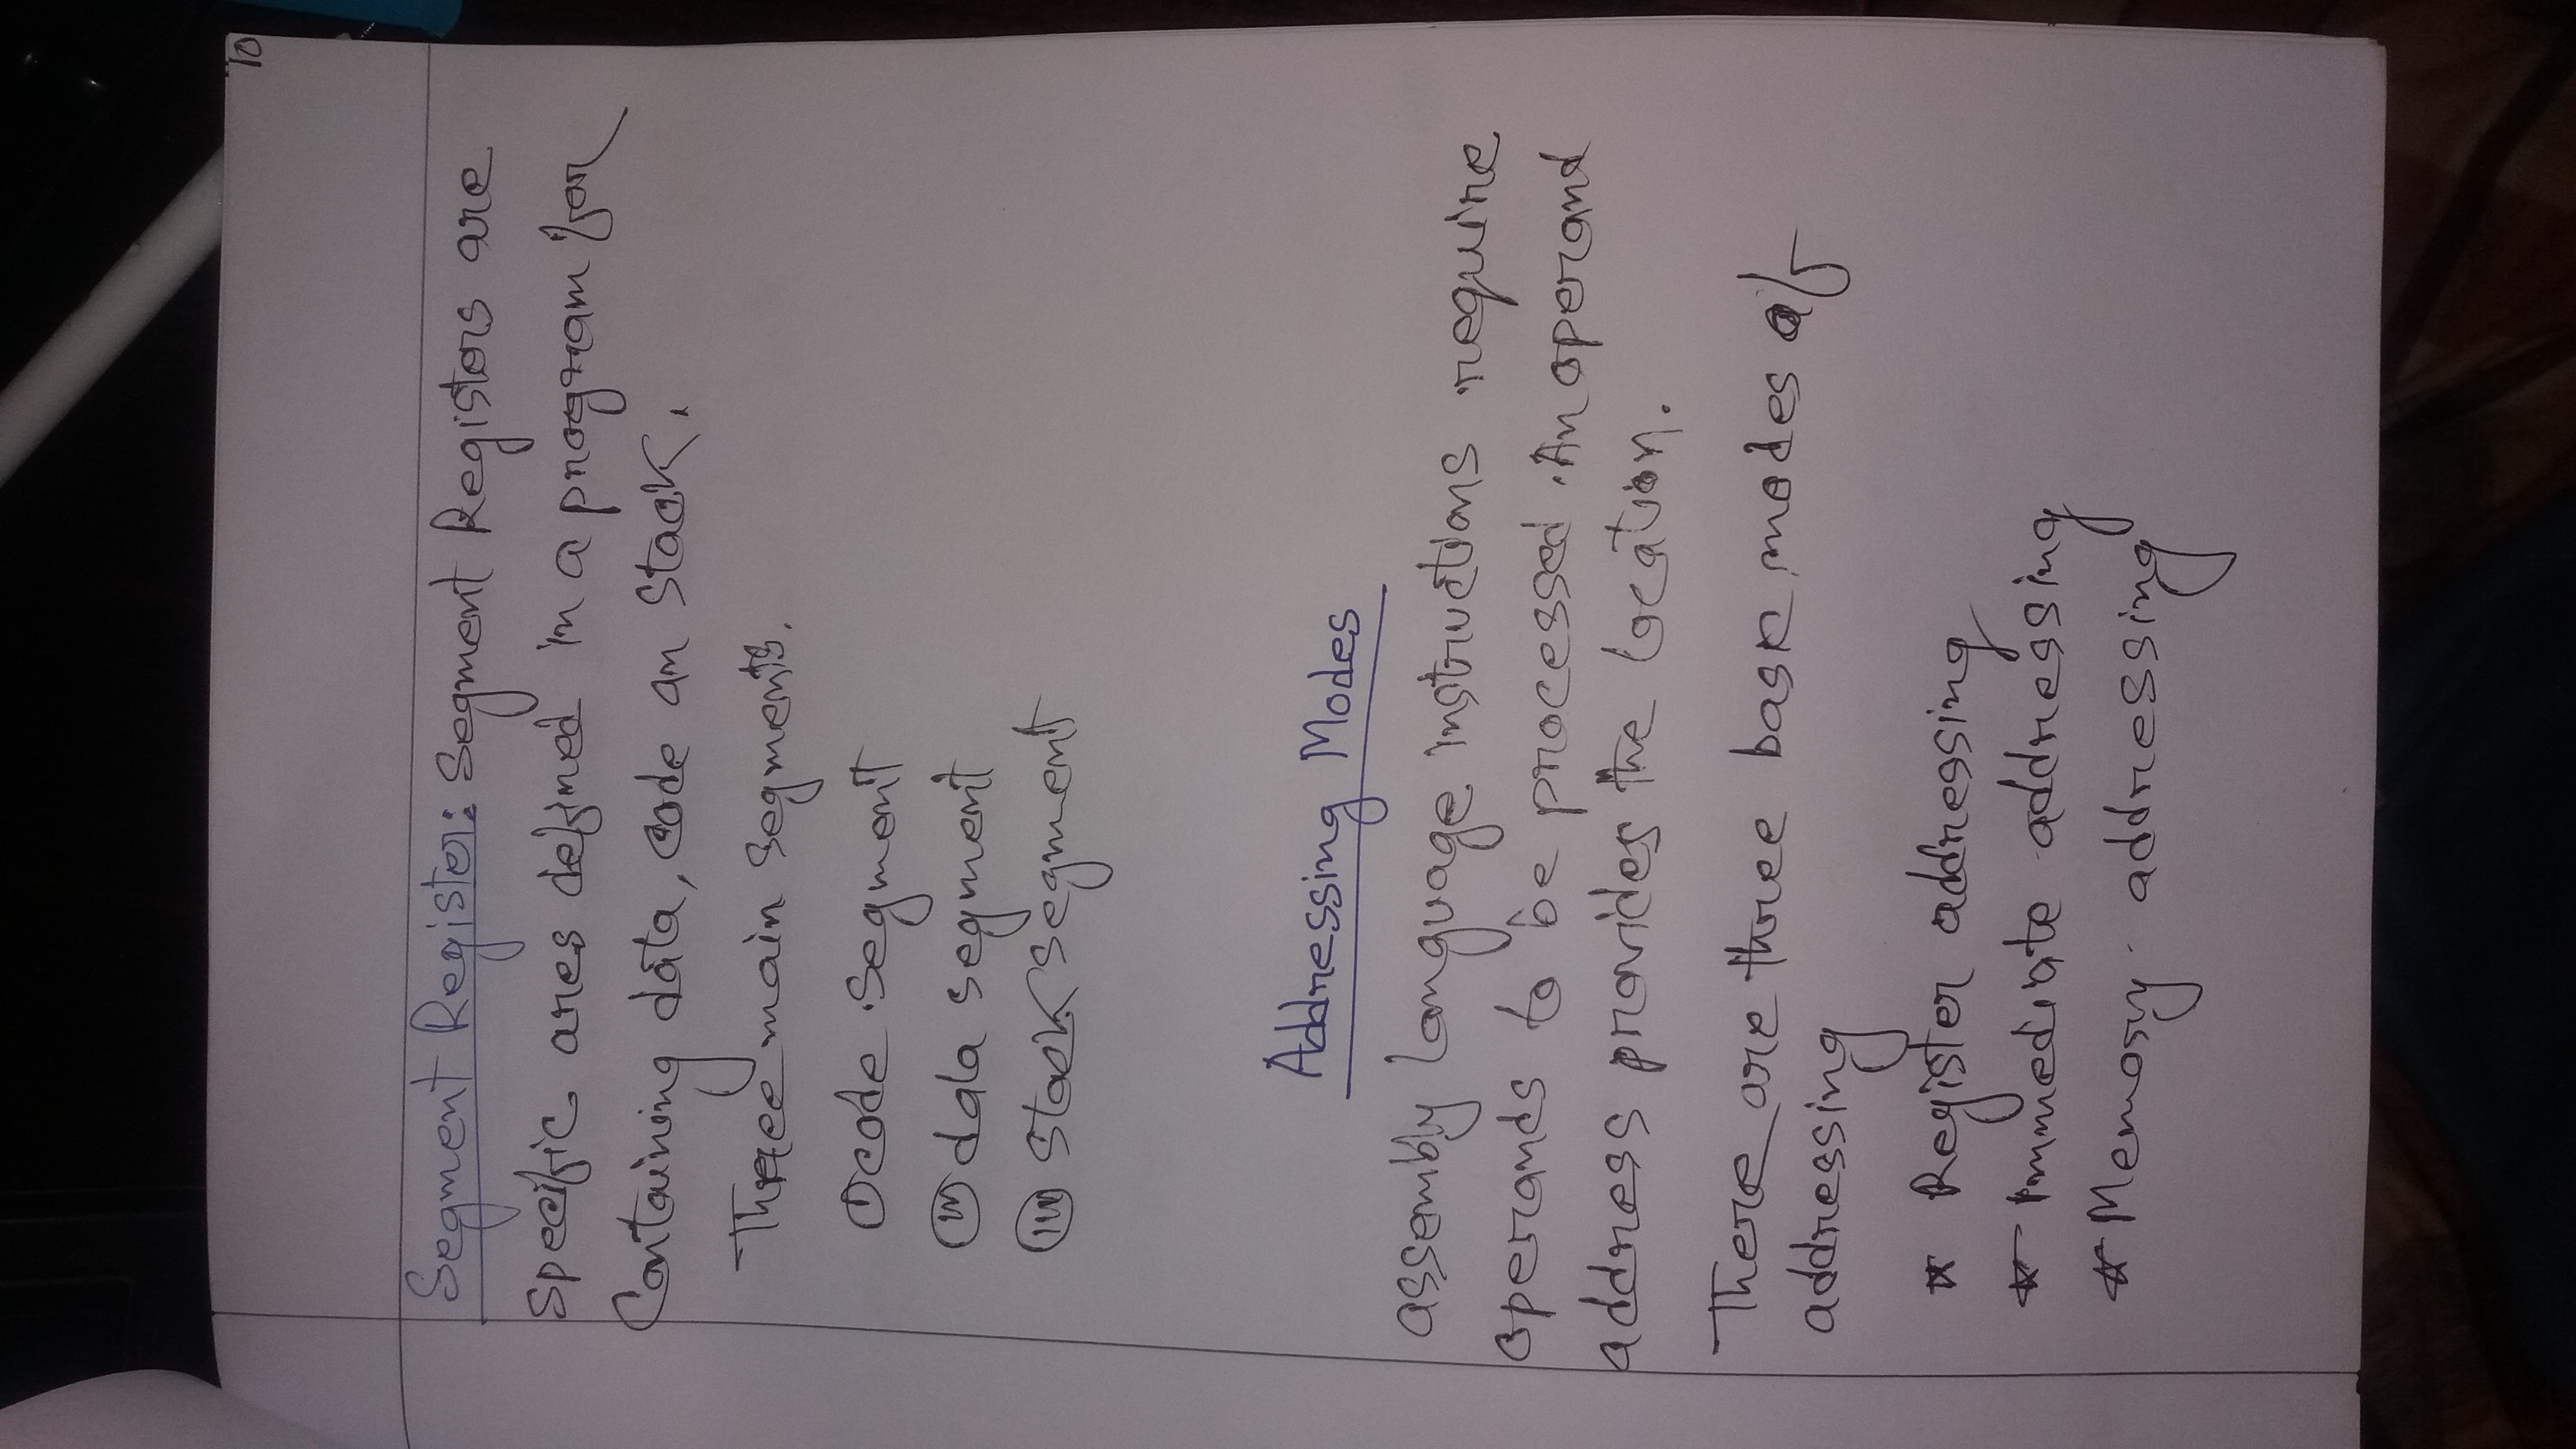 10
Segment Register: Segment Registers are
specific ares defined in a program for
Containing data, code an Stack.
Three main segments.
① code segment
ⓘⓘ data segment
ⓘⓘⓘ Stack segment
Addressing Modes
assembly language instructions require
operands to be processed. An operand
address provides the location.
There are three basic modes of
addressing
* Register addressing
* Immediate addressing
* Memory addressing